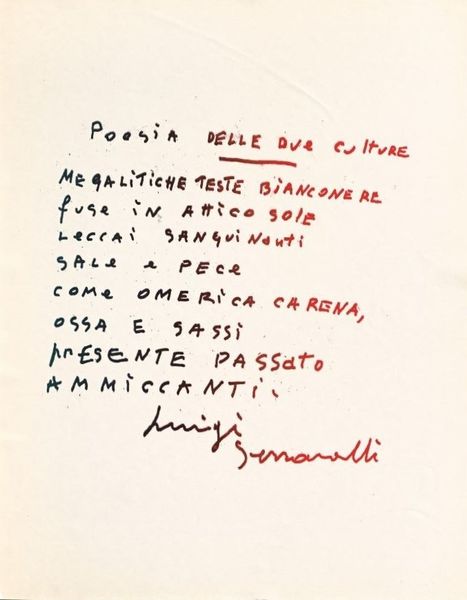 Poesia DELLE DUE CULTURE
MEGALITICHE TESTE BIANCONERE
fuse IN Attico sole
Leccai SANGUINanti
SALe e PECe
COMe OMERICA CARENA,
OSSA E SASSI
PRESENTE PASSato
AMMICCANTI.
Luigi